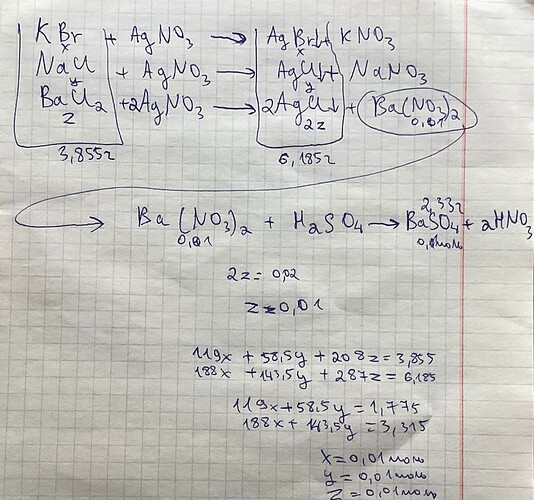 KBr + AgNO₃ → AgBr↓ + KNO₃
x x
NaCl + AgNO₃ → AgCl↓ + NaNO₃
y y
BaCl₂ + 2AgNO₃ → 2AgCl↓ + Ba(NO₃)₂
z 2z 0,01
3,855г 6,185г
2,33г
Ba(NO₃)₂ + H₂SO₄ → BaSO₄ + 2HNO₃
0,01 0,01моль
2z = 0,02
z = 0,01
119x + 58,5y + 208z = 3,855
188x + 143,5y + 287z = 6,185
119x + 58,5y = 1,775
188x + 143,5y = 3,315
x = 0,01моль
y = 0,01моль
z = 0,01моль